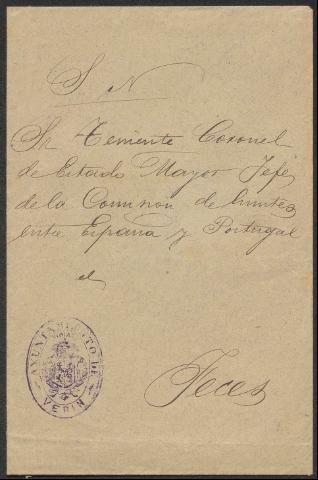 S N
Sr Teniente Coronel
de Estado Mayor Jefe
de la Comision de limites
entre España y Portugal
el
Feces
AYUNTAMIENTO DE
VERIN